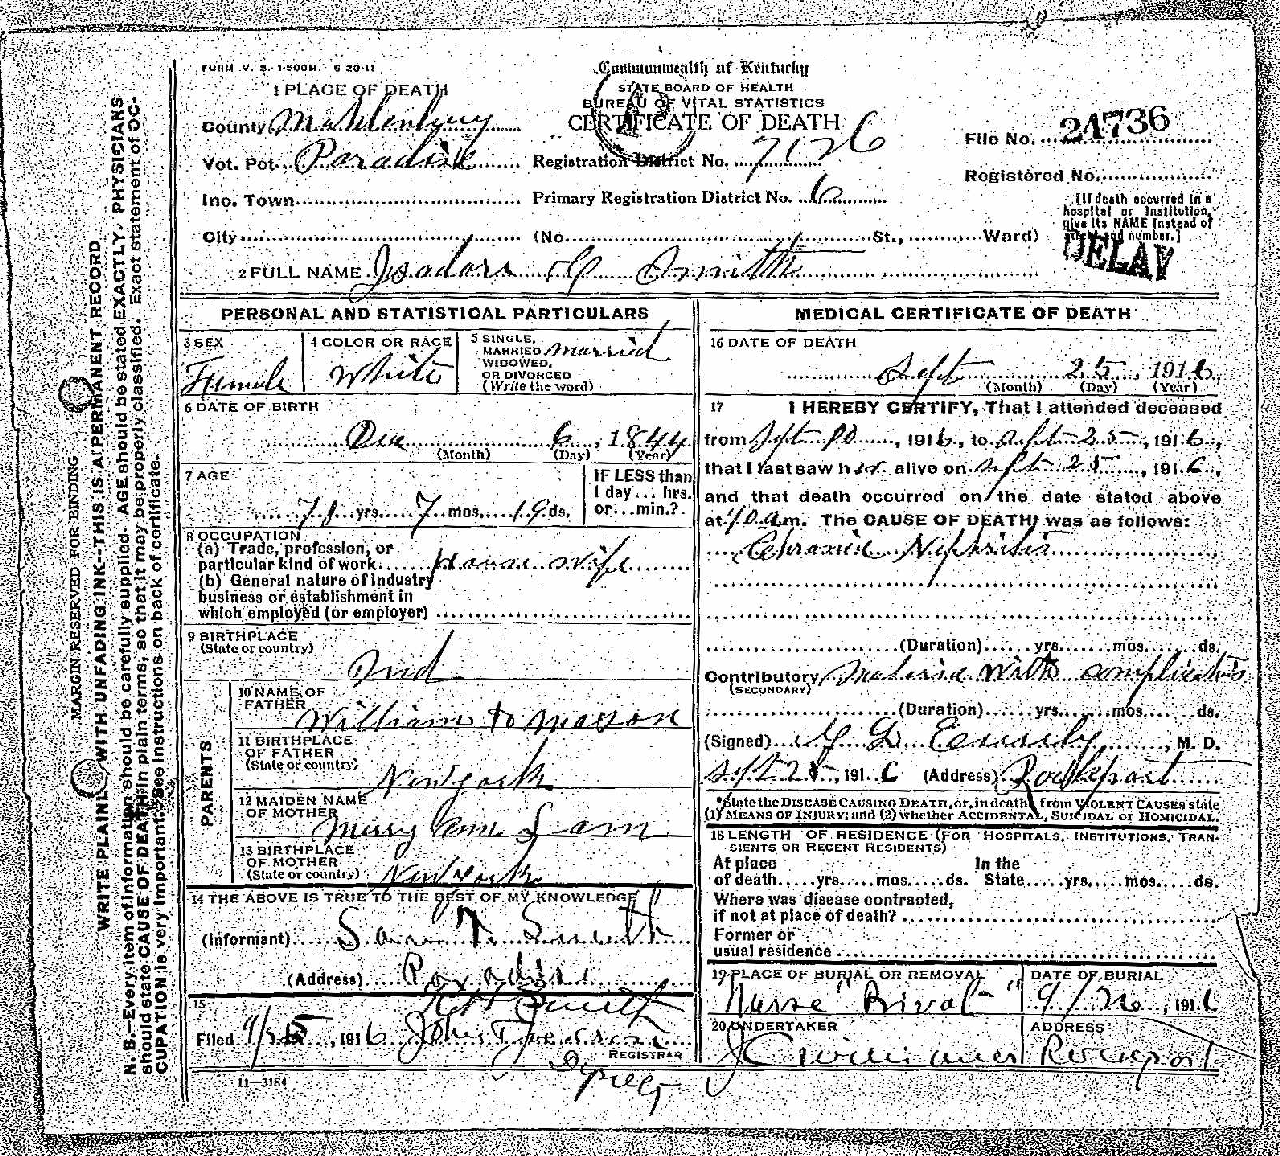 FORM V. S. 1-500M. 6 20-11
Commonwealth of Kentucky
STATE BOARD OF HEALTH
BUREAU OF VITAL STATISTICS
CERTIFICATE OF DEATH
1 PLACE OF DEATH
County Muhlenburg
Vot. Pct. Paradise
Inc. Town
City
Registration District No. 7126
Primary Registration District No. 6
(No. St., Ward)
File No. 24736
Registered No.
[If death occurred in a
hospital or Institution,
give its NAME instead of
street and number.]
DELAY
2 FULL NAME Isadora C Smith
PERSONAL AND STATISTICAL PARTICULARS
3 SEX
Female
4 COLOR OR RACE
White
5 SINGLE,
MARRIED
WIDOWED,
OR DIVORCED
(Write the word)
married
6 DATE OF BIRTH
Dec 6, 1844
(Month) (Day) (Year)
7 AGE
71 yrs. 7 mos. 19 ds.
IF LESS than
1 day... hrs.
or...min.?
8 OCCUPATION
(a) Trade, profession, or
particular kind of work House wife
(b) General nature of industry
business or establishment in
which employed (or employer)
9 BIRTHPLACE
(State or country)
Ind
PARENTS
10 NAME OF
FATHER
William
11 BIRTHPLACE
OF FATHER
(State or country)
Newyork
12 MAIDEN NAME
OF MOTHER
Merry Ann Lam
13 BIRTHPLACE
OF MOTHER
(State or country)
Newyork
14 THE ABOVE IS TRUE TO THE BEST OF MY KNOWLEDGE
(Informant) Sam T. Smith
(Address) Paradise
15
Filed 9/25, 1916
REGISTRAR
Deputy
11-3184
MEDICAL CERTIFICATE OF DEATH
16 DATE OF DEATH
Sept 25, 1916
(Month) (Day) (Year)
17 I HEREBY CERTIFY, That I attended deceased
from Sept, 1916, to Sept 25, 1916,
that I last saw her alive on Sept 25, 1916,
and that death occurred on the date stated above
at a m. The CAUSE OF DEATH was as follows:
Chronic Nephritis
(Duration) yrs. mos. ds.
Contributory Malaria with complications
(SECONDARY)
(Duration) yrs. mos. ds.
(Signed), M. D.
Sept 25, 1916 (Address) Rockport
*State the DISEASE CAUSING DEATH, or, in death from VIOLENT CAUSES state
(1) MEANS OF INJURY; and (2) whether ACCIDENTAL, SUICIDAL or HOMICIDAL.
18 LENGTH OF RESIDENCE (FOR HOSPITALS, INSTITUTIONS, TRAN-
SIENTS OR RECENT RESIDENTS)
At place In the
of death.....yrs.....mos.....ds. State.....yrs.....mos.....ds.
Where was disease contracted,
if not at place of death?
Former or
usual residence
19 PLACE OF BURIAL OR REMOVAL
DATE OF BURIAL
9/26, 1916
20 UNDERTAKER
ADDRESS
Rockport
MARGIN RESERVED FOR BINDING
WRITE PLAINLY, WITH UNFADING INK--THIS IS A PERMANENT RECORD
N. B.--Every item of information should be carefully supplied. AGE should be stated EXACTLY. PHYSICIANS
should state CAUSE OF DEATH in plain terms, so that it may be properly classified. Exact statement of OC-
CUPATION is very important. See instructions on back of certificate.